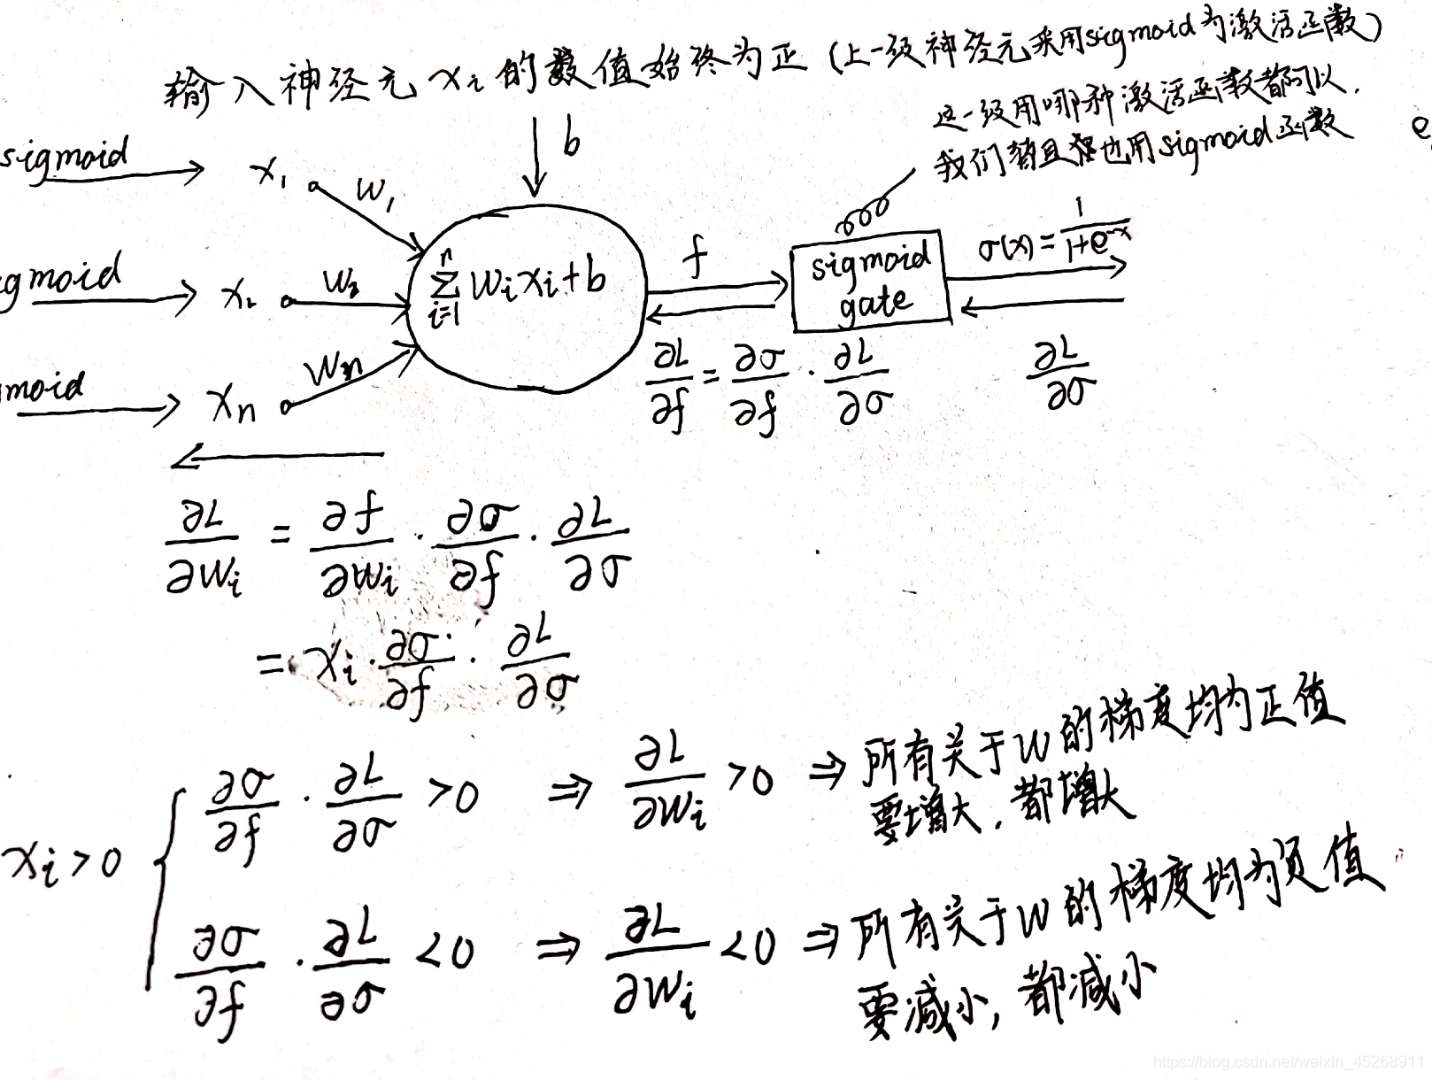 输入神经元 xᵢ 的数值始终为正 (上一级神经元采用sigmoid为激活函数)
这一级用哪种激活函数都可以.
我们暂且也用sigmoid函数
e
sigmoid
x₁
w₁
b
gmoid
x₂
w₂
moid
xₙ
wₙ
∑ᵢ₌₁ⁿ wᵢxᵢ+b
f
sigmoid
gate
σ(x) = 1/(1+e⁻ˣ)
∂L/∂f = ∂σ/∂f · ∂L/∂σ
∂L/∂σ
∂L/∂wᵢ = ∂f/∂wᵢ · ∂σ/∂f · ∂L/∂σ
= xᵢ · ∂σ/∂f · ∂L/∂σ
xᵢ > 0
∂σ/∂f · ∂L/∂σ > 0 ⇒ ∂L/∂wᵢ > 0 ⇒ 所有关于W的梯度均为正值
要增大, 都增大
∂σ/∂f · ∂L/∂σ < 0 ⇒ ∂L/∂wᵢ < 0 ⇒ 所有关于W的梯度均为负值
要减小, 都减小
https://blog.csdn.net/weixin_45268911